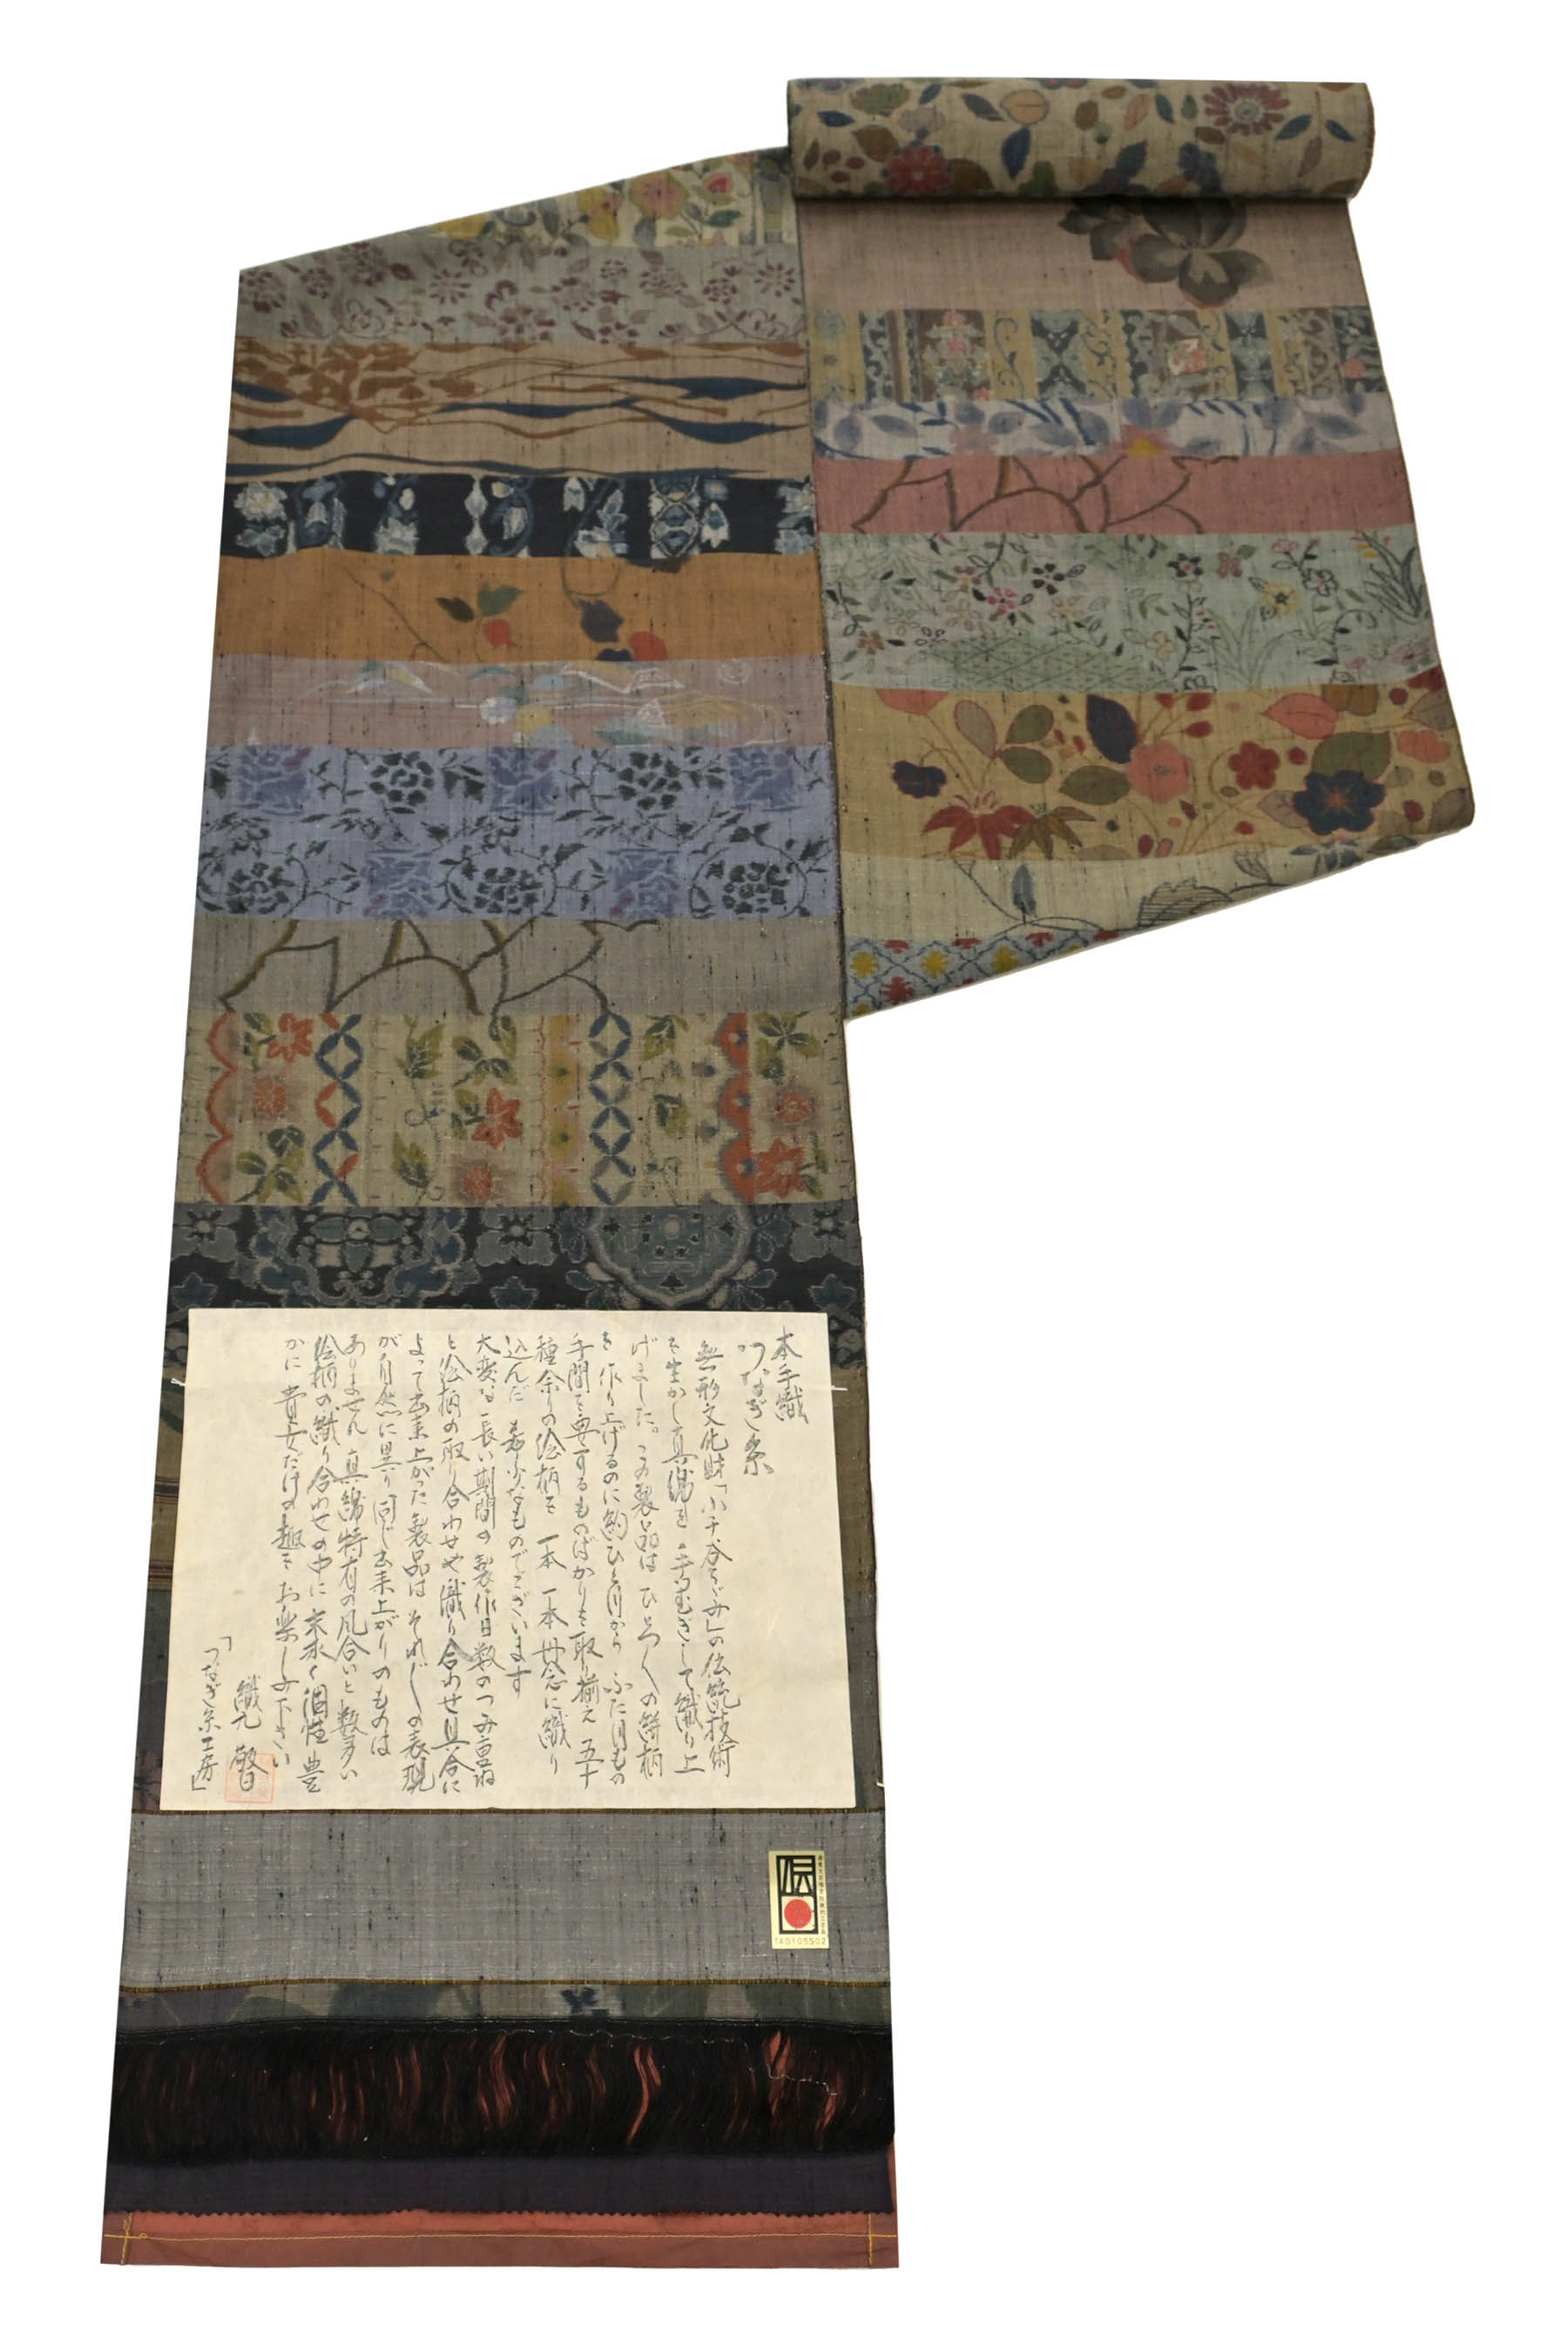 本手織
つなぎ糸
無形文化財「小千谷つむぎ」の伝統技術
を生かし真綿を手つむぎして織り上
げました。この製品はひとつ〱の絣柄
を作り上げるのに約ひと月から ふた月もの
手間を要するものばかりを取り揃え 五十
種余りの絵柄を 一本 一本 丹念に織り
込んだ 希少なものでございます
大変な長い期間の製作日数のつみ重ね
と絵柄の取り合わせや織り合わせ具合に
よって出来上がった製品は それ〲の表現
が自然に異り 同じ出来上がりのものは
ありません 真綿特有の風合いと数多い
絵柄の織り合わせの中に 末永く個性豊
かに 貴女だけの趣をお楽しみ下さい
織元 警
「つなぎ糸工房」
伝
TA0105502